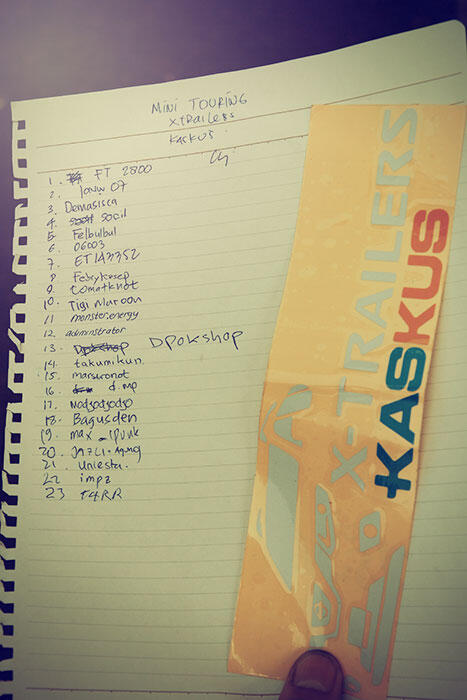 MINI TOURING
XTRAILERS
KASKUS
1. FT 2800
2. 07
3. Demasisca
4. socil
5 Felbulbul
6. 06003
7. ET 143352
8 Febrykasep
9. tomatknot
10. Tigi Maroon
11 monster.energy
12. administrator
13. Dpokshop DPOKSHOP
14. takumikun.
15. marsuronot
16. d.mp
17. Nodsodsodso
18. Bagusden
19. max_ipunk
20. JAZLI.Agung
21. uniesta.
22 impz
23 T4RR
X-TRAILERS
KASKUS